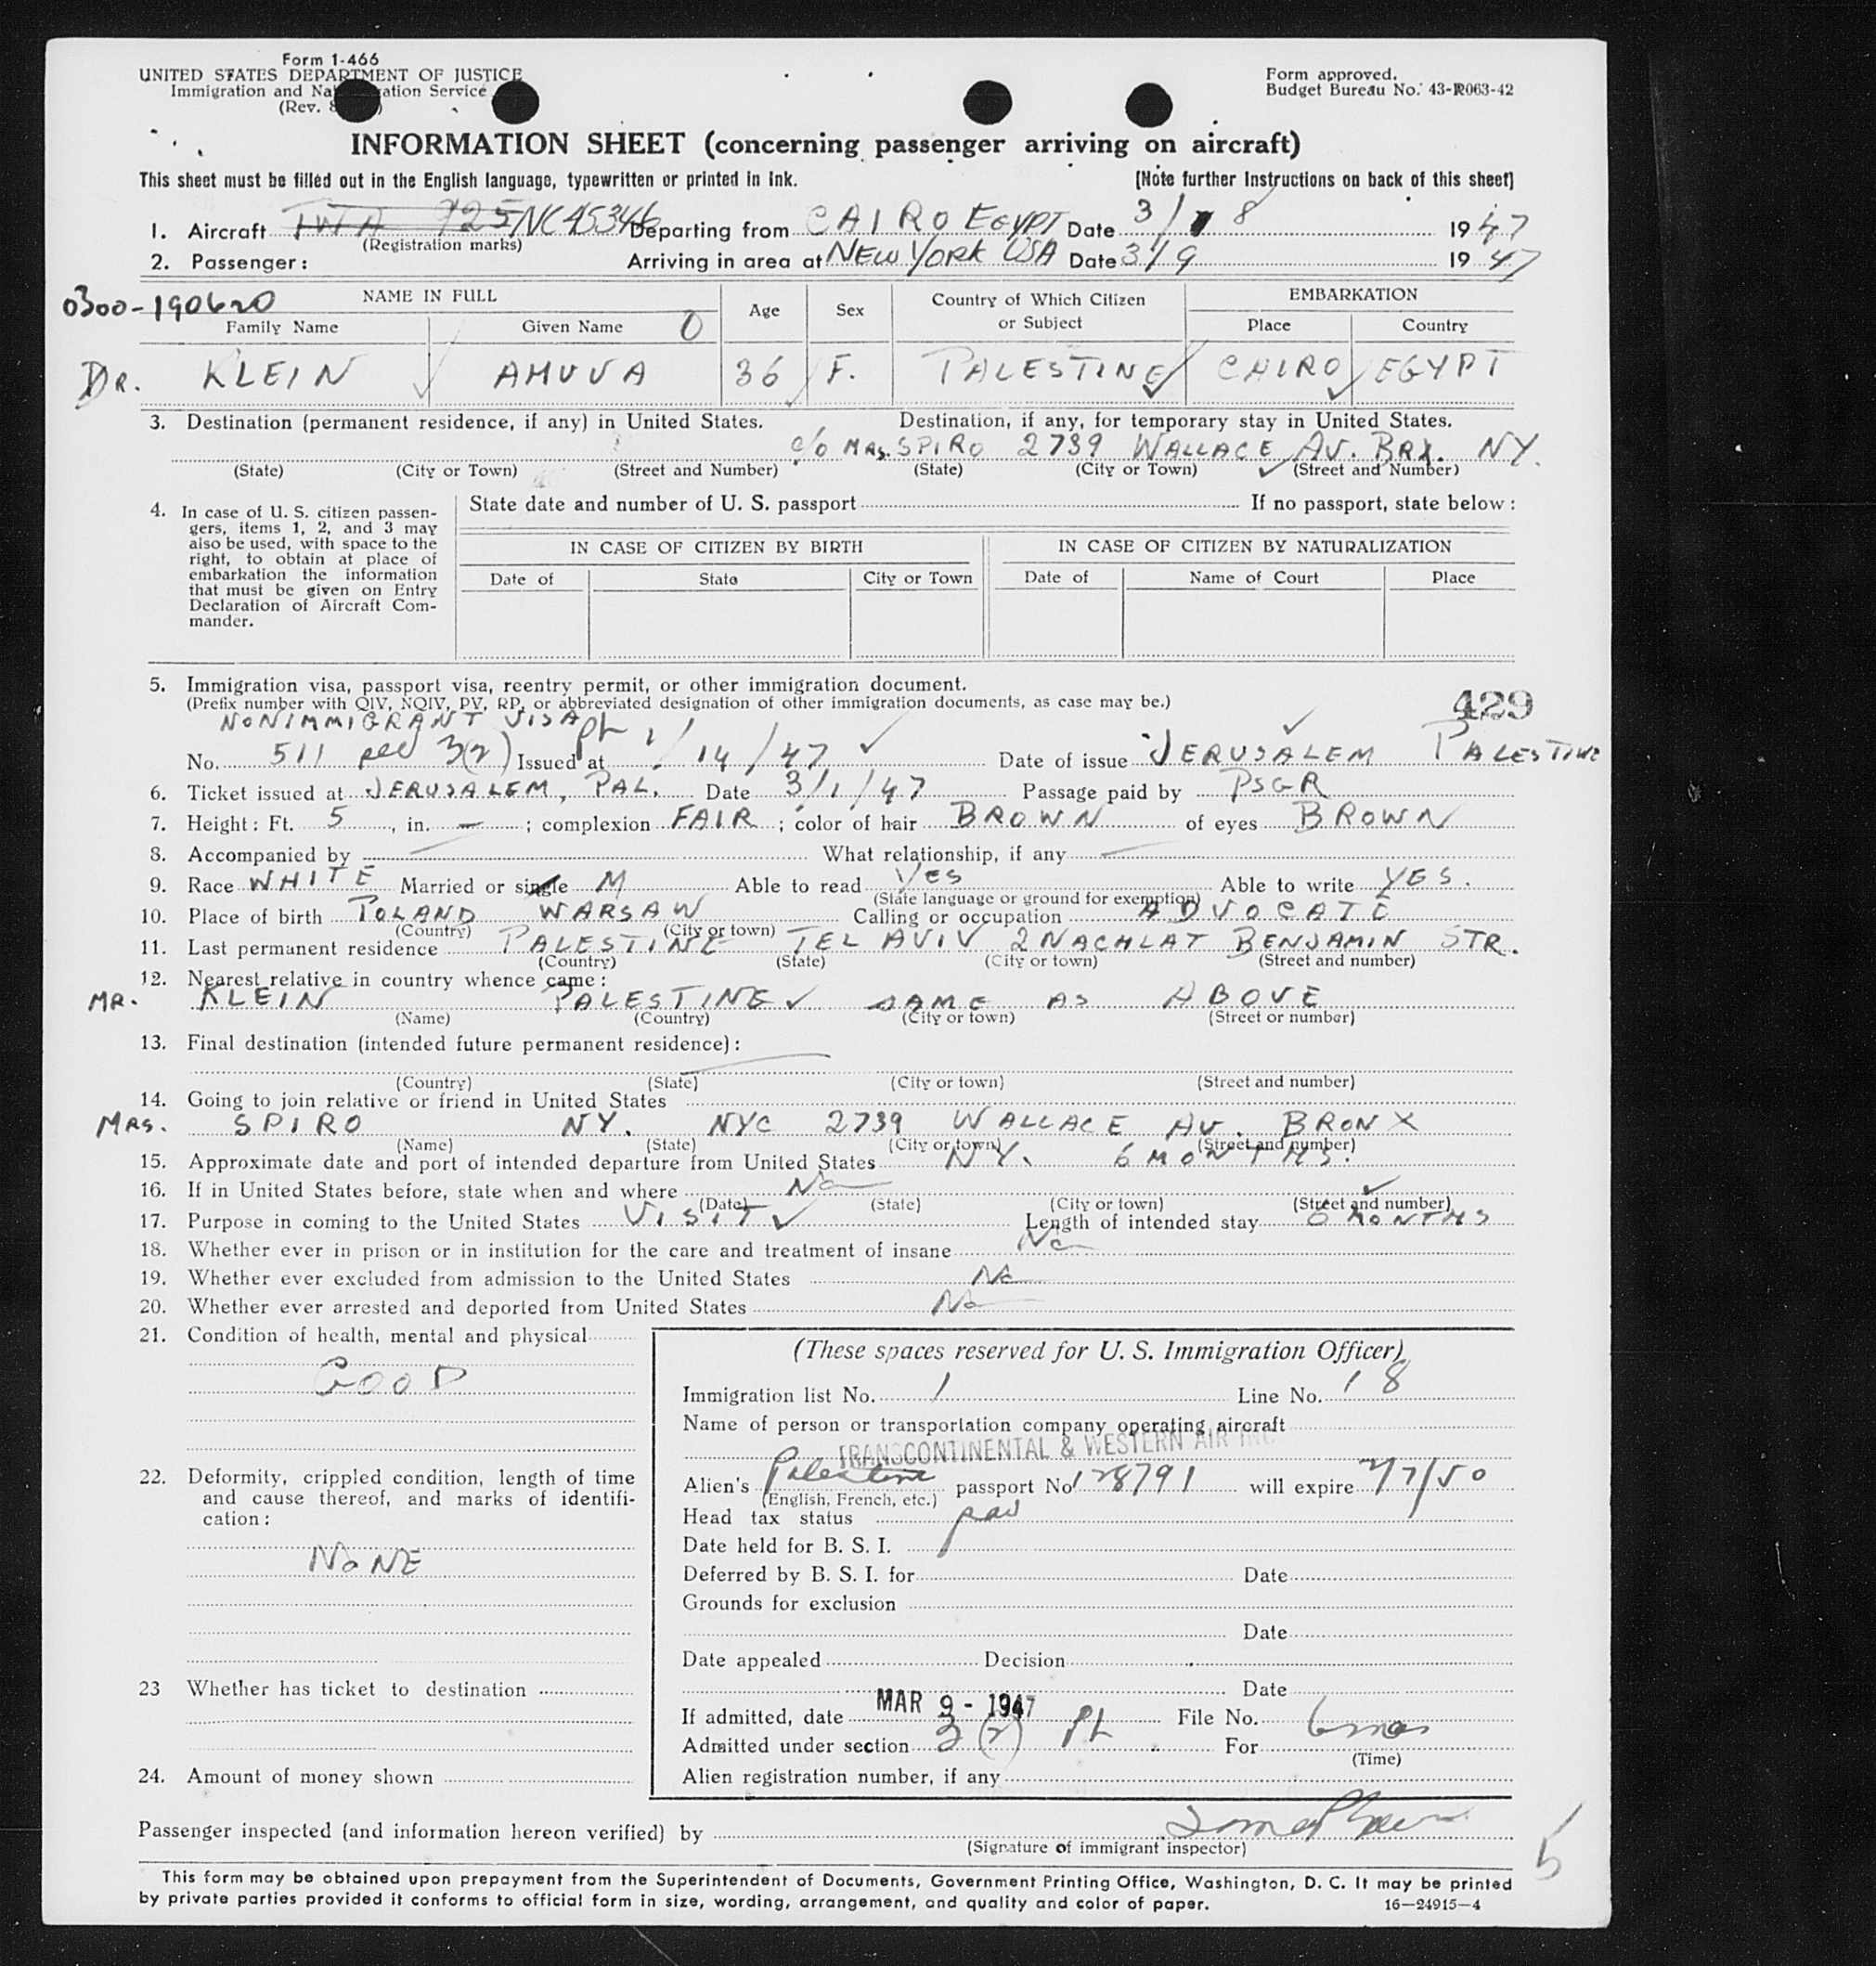 Form 1-466
UNITED STATES DEPARTMENT OF JUSTICE
Immigration and Na ation Service
(Rev. )
Form approved.
Budget Bureau No. 43-R063-42
INFORMATION SHEET (concerning passenger arriving on aircraft)
This sheet must be filled out in the English language, typewritten or printed in ink. [Note further Instructions on back of this sheet]
1. Aircraft TWA 725 NC45346 Departing from CAIRO EGYPT Date 3/8 1947
(Registration marks)
2. Passenger: Arriving in area at NEW YORK USA Date 3/9 1947
0300-190620
NAME IN FULL Age Sex Country of Which Citizen or Subject EMBARKATION
Family Name Given Name 0 Place Country
DR. KLEIN AHUVA 36 F. PALESTINE CAIRO EGYPT
3. Destination (permanent residence, if any) in United States. Destination, if any, for temporary stay in United States.
c/o MRS. SPIRO 2739 WALLACE AV. BRX. NY.
(State) (City or Town) (Street and Number) (State) (City or Town) (Street and Number)
4. In case of U. S. citizen passen-
gers, items 1, 2, and 3 may
also be used, with space to the
right, to obtain at place of
embarkation the information
that must be given on Entry
Declaration of Aircraft Com-
mander.
State date and number of U. S. passport If no passport, state below:
IN CASE OF CITIZEN BY BIRTH IN CASE OF CITIZEN BY NATURALIZATION
Date of State City or Town Date of Name of Court Place
5. Immigration visa, passport visa, reentry permit, or other immigration document.
(Prefix number with QIV, NQIV, PV, RP, or abbreviated designation of other immigration documents, as case may be.)
429
NONIMMIGRANT VISA
No. 511 3(2) Issued at 1/14/47 Date of issue JERUSALEM PALESTINE
6. Ticket issued at JERUSALEM, PAL. Date 3/1/47 Passage paid by PSGR
7. Height: Ft. 5, in. —; complexion FAIR; color of hair BROWN of eyes BROWN
8. Accompanied by — What relationship, if any —
9. Race WHITE Married or single M Able to read YES Able to write YES.
(State language or ground for exemption)
10. Place of birth POLAND WARSAW Calling or occupation ADVOCATE
(Country) (City or town)
11. Last permanent residence PALESTINE TEL AVIV 2 NACHLAT BENJAMIN STR.
(Country) (State) (City or town) (Street and number)
12. Nearest relative in country whence came:
MR. KLEIN PALESTINE SAME AS ABOVE
(Name) (Country) (City or town) (Street or number)
13. Final destination (intended future permanent residence):
(Country) (State) (City or town) (Street and number)
14. Going to join relative or friend in United States
MRS. SPIRO NY. NYC 2739 WALLACE AV. BRONX
(Name) (State) (City or town) (Street and number)
15. Approximate date and port of intended departure from United States NY. 6 MONTHS.
16. If in United States before, state when and where No
(Date) (State) (City or town) (Street and number)
17. Purpose in coming to the United States VISIT Length of intended stay 6 MONTHS
18. Whether ever in prison or in institution for the care and treatment of insane No
19. Whether ever excluded from admission to the United States No
20. Whether ever arrested and deported from United States No
21. Condition of health, mental and physical
GOOD
22. Deformity, crippled condition, length of time
and cause thereof, and marks of identifi-
cation:
NONE
23 Whether has ticket to destination
24. Amount of money shown
(These spaces reserved for U. S. Immigration Officer)
Immigration list No. 1 Line No. 18
Name of person or transportation company operating aircraft
TRANSCONTINENTAL & WESTERN AIR INC
Alien's Palestine passport No 128791 will expire 2/7/50
(English, French, etc.)
Head tax status
Date held for B. S. I.
Deferred by B. S. I. for Date
Grounds for exclusion
Date
Date appealed Decision
Date
If admitted, date MAR 9 - 1947 File No.
Admitted under section 3(2) For 6 mos
(Time)
Alien registration number, if any
Passenger inspected (and information hereon verified) by
(Signature of immigrant inspector)
5
This form may be obtained upon prepayment from the Superintendent of Documents, Government Printing Office, Washington, D. C. It may be printed
by private parties provided it conforms to official form in size, wording, arrangement, and quality and color of paper. 16—24915-4